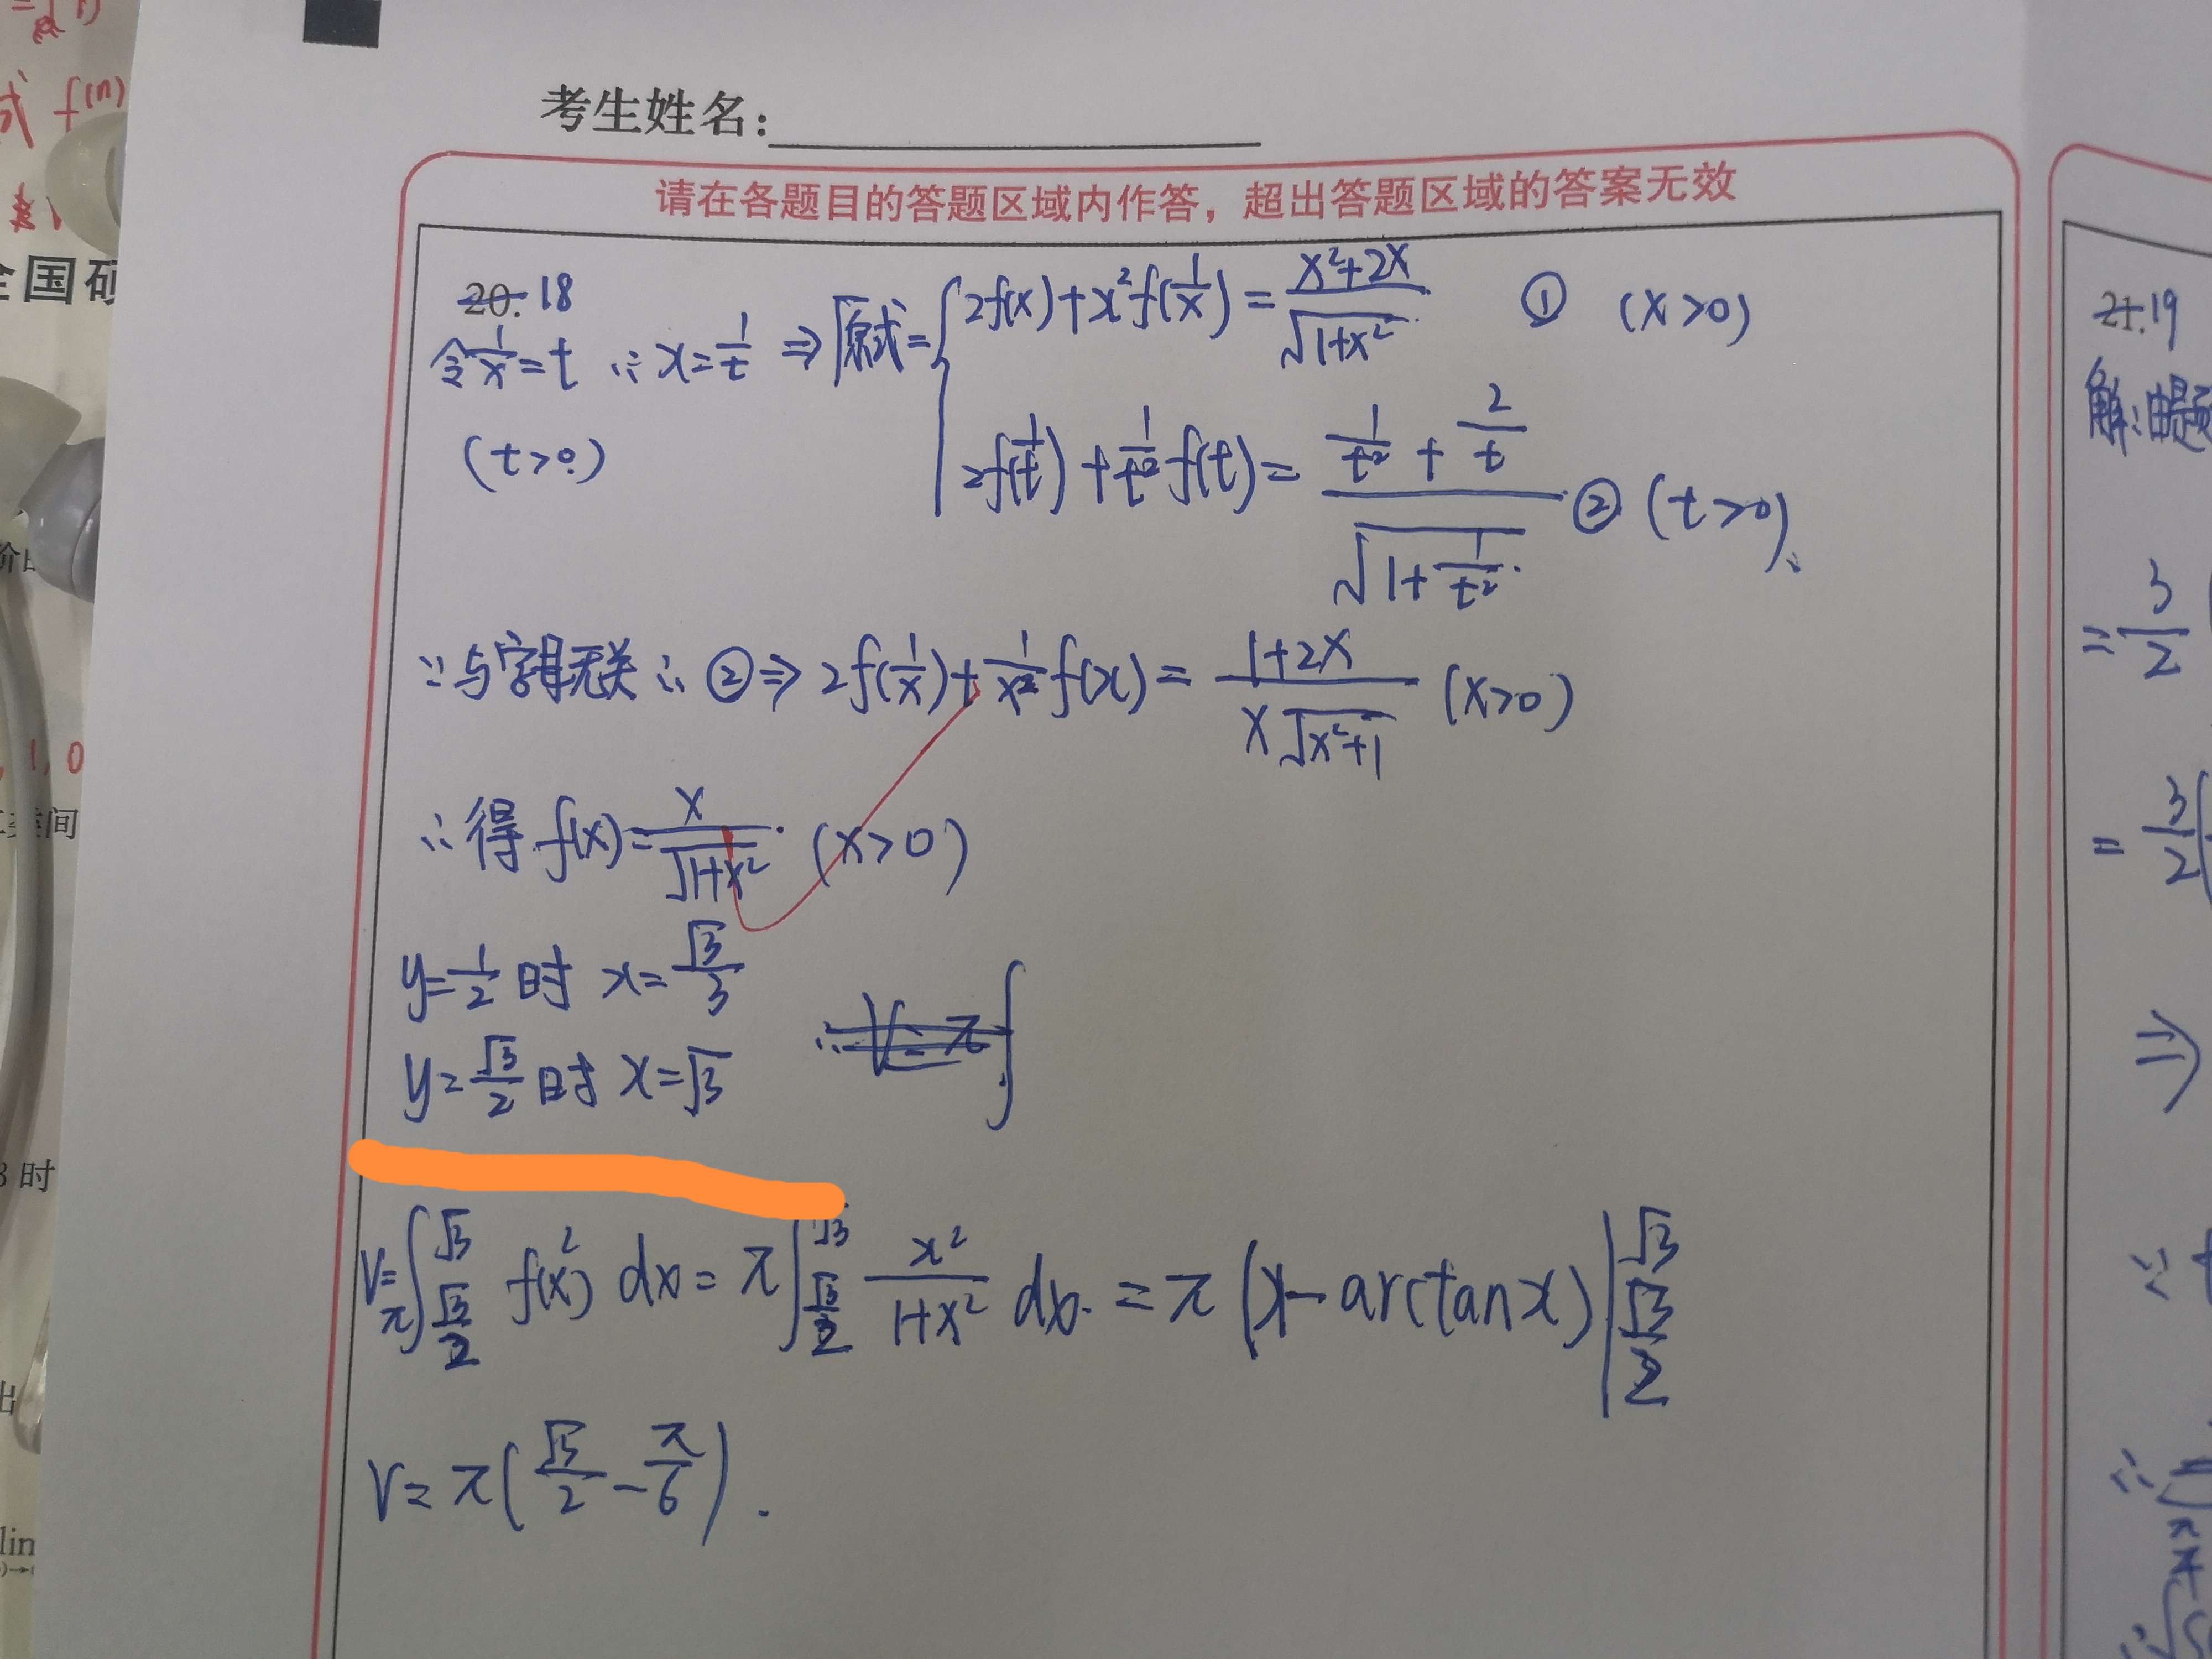 考生姓名:
请在各题目的答题区域内作答，超出答题区域的答案无效
20. 18
令 1/x = t ∴ x = 1/t ⇒ 原式 = { 2f(x) + x² f(1/x) = (x²+2x)/√(1+x²) ① (x>0)
(t>0) 2f(1/t) + 1/t² f(t) = (1/t² + 2/t)/√(1+1/t²) ② (t>0)
∵ 与字母无关 ∴ ② ⇒ 2f(1/x) + 1/x² f(x) = (1+2x)/(x√(x²+1)) (x>0)
∴ 得 f(x) = x/√(1+x²) (x>0)
y = 1/2 时 x = √3/3
y = √3/2 时 x = √3 ∴ V = π∫
V = π∫_{√3/2}^{√3} f(x)² dx = π∫_{√3/2}^{√3} x²/(1+x²) dx = π(x − arctan x)|_{√3/2}^{√3}
V = π(√3/2 − π/6).
21. 19
解:由题
= 3/2
= 3/2
⇒
∵
∴
式 f(n)
全国硕
, 1, 0
空间
3 时
出
lim